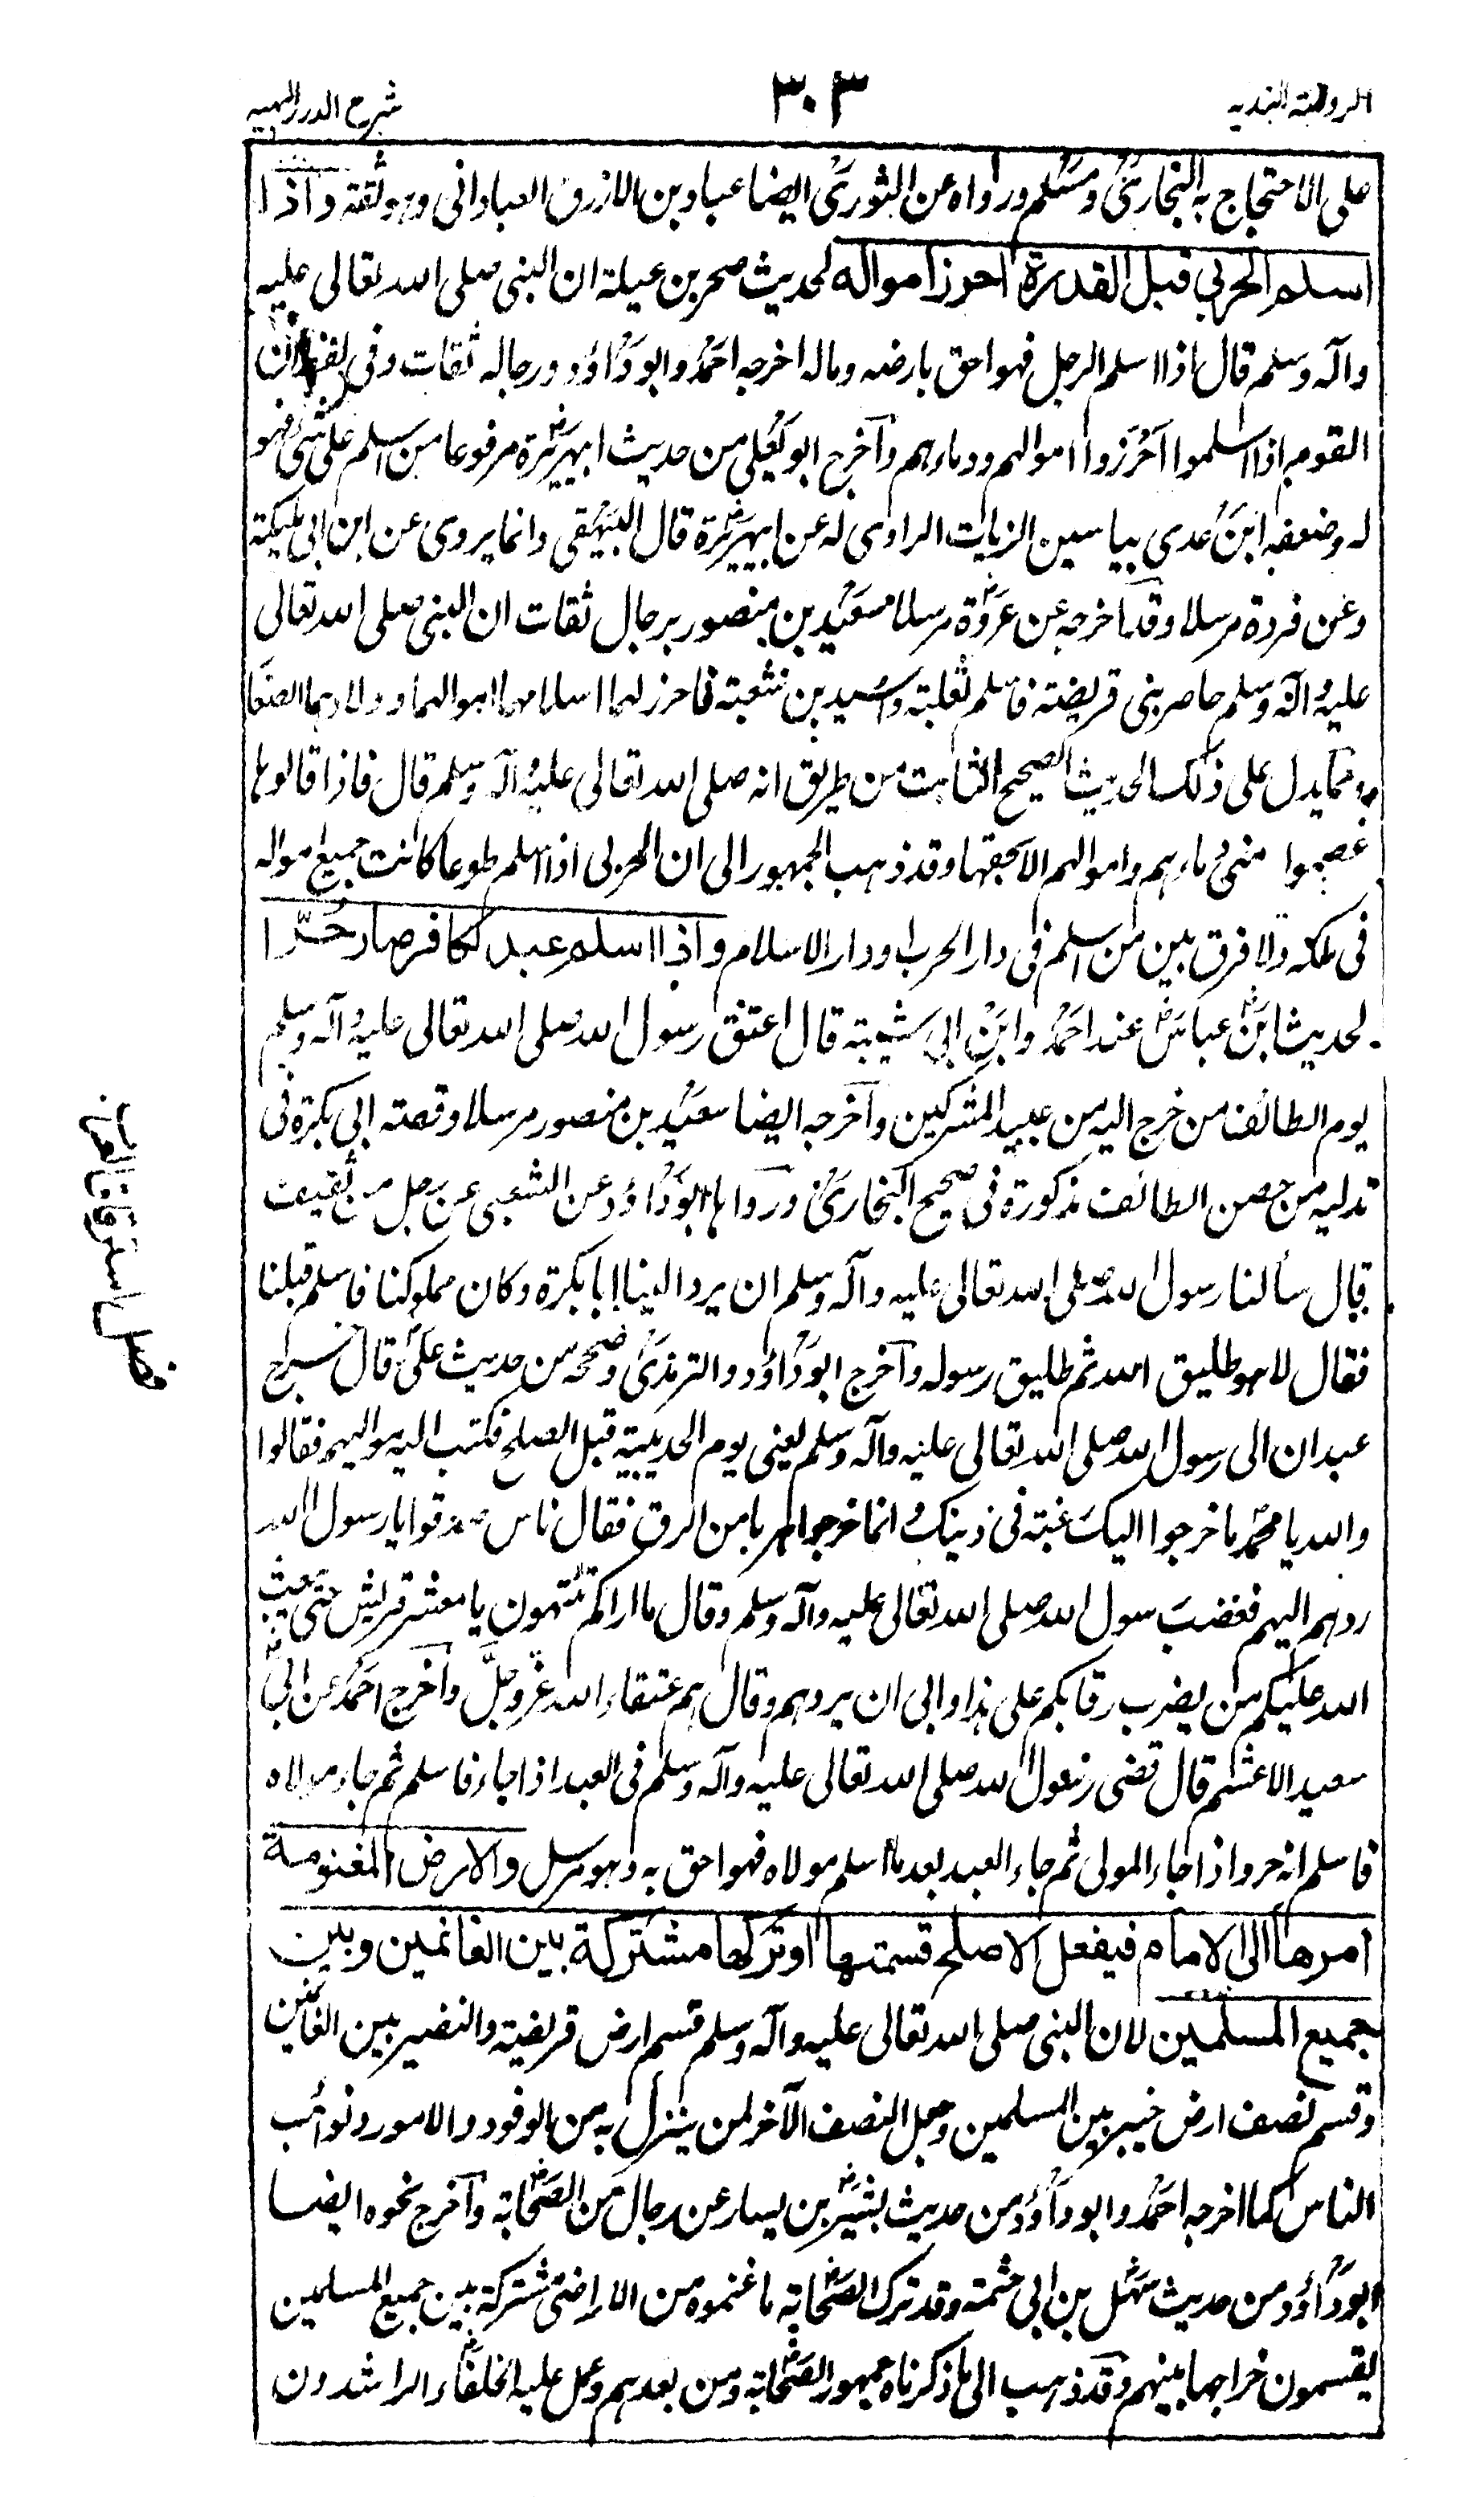 الروضة الندیه
٣٠٣
شرح الدرر البهیه
علی الاحتجاج به البخاریؒ ومسلمؒ ورواه عن الثوریؒ ایضا عباد بن الازرق العبادانی وهو ثقة واذا
اسلم الحربی قبل القدرة احرز امواله لحدیث صخر بن عیلة ان النبی صلی الله تعالی علیه
وآله وسلم قال اذا اسلم الرجل فهو احق بارضه وماله اخرجه احمدؒ وابو داؤد ورجاله ثقات وفی لفظ ان
القوم اذا اسلموا احرزوا اموالهم ودماءهم واخرج ابو یعلی من حدیث ابی هریرةؓ مرفوعا من اسلم علی شیٔ فهو
له وضعفه ابن عدی بیاسین الزیات الراوی له عن ابی هریرةؓ قال البیهقی وانما یروی عن ابن ابی ملیکة
وعن عروة مرسلا وقد اخرجه عن عروةؓ مرسلا سعید بن منصور برجال ثقات ان النبی صلی الله تعالی
علیه وآله وسلم حاصر بنی قریضة فاسلم ثعلبة واسید بن شعبة فاحرز لهما اسلامهما اموالهما واولادهما الصغار
ومما یدل علی ذلک الحدیث الصحیح الثابت من طریق انه صلی الله تعالی علیه وآله وسلم قال فاذا قالوها
عصموا منی دماءهم واموالهم الا بحقها وقد ذهب الجمهور الی ان الحربی اذا اسلم طوعا کانت جمیع امواله
فی ملکه ولا فرق بین من اسلم فی دار الحرب او دار الاسلام واذا اسلم عبد لکافر صار حُرّا
لحدیث ابنؓ عباسؓ عند احمدؒ وابن ابی شیبة قال اعتق رسول الله صلی الله تعالی علیه وآله وسلم
یوم الطائف من خرج الیه من عبید المشرکین واخرجه ایضا سعید بن منصور مرسلا وقصة ابی بکرة فی
تدلیه من حصن الطائف مذکورة فی صحیح البخاریؒ ورواها ابو داؤد عن الشعبی عن رجل من ثقیف
قال سألنا رسول الله صلی الله تعالی علیه وآله وسلم ان یرد الینا ابا بکرة وکان مملوکنا فاسلم قبلنا
فقال لا هو طلیق الله ثم طلیق رسوله واخرج ابو داؤد والترمذیؒ وصححه من حدیث علیؓ قال خرج
عبدان الی رسول الله صلی الله تعالی علیه وآله وسلم یعنی یوم الحدیبیة قبل الصلح فکتب الیه موالیهم فقالوا
والله یا محمدؐ ما خرجوا الیک رغبة فی دینک وانما خرجوا هربا من الرق فقال ناس صدقوا یا رسول الله
ردهم الیهم فغضب رسول الله صلی الله تعالی علیه وآله وسلم وقال ما اراکم تنتهون یا معشر قریش حتی یبعث
الله علیکم من یضرب رقابکم علی هذا وابی ان یردهم وقال هم عتقاء الله عزّ وجلّ واخرج احمدؒ عن ابی
سعید الاعشم قال قضی رسول الله صلی الله تعالی علیه وآله وسلم فی العبد اذا جاء فاسلم ثم جاء مولاه
فاسلم انه حر واذا جاء المولی ثم جاء العبد بعد ما اسلم مولاه فهو احق به وهو مرسل والارض المغنومة
امرها الی الامام فیفعل الاصلح قسمتها او ترکها مشترکة بین الغانمین وبین
جمیع المسلمین لان النبی صلی الله تعالی علیه وآله وسلم قسم ارض قریضة والنضیر بین الغانمین
وقسم نصف ارض خیبر بین المسلمین وجعل النصف الآخر لمن ینزل به من الوفود والامور ونوائب
الناس کما اخرجه احمدؒ وابو داؤد من حدیث بشیرؓ بن یسار عن رجال من الصحابةؓ واخرج نحوه ایضا
ابو داؤد من حدیث سهل بن ابی حثمة وقد ترک الصحابةؓ ما غنموه من الاراضی مشترکة بین جمیع المسلمین
یقسمون خراجها بینهم وقد ذهب الی ما ذکرناه جمهور الصحابةؓ ومن بعدهم وعمل علیه الخلفاءؓ الراشدون
فصل استرقاق العرب